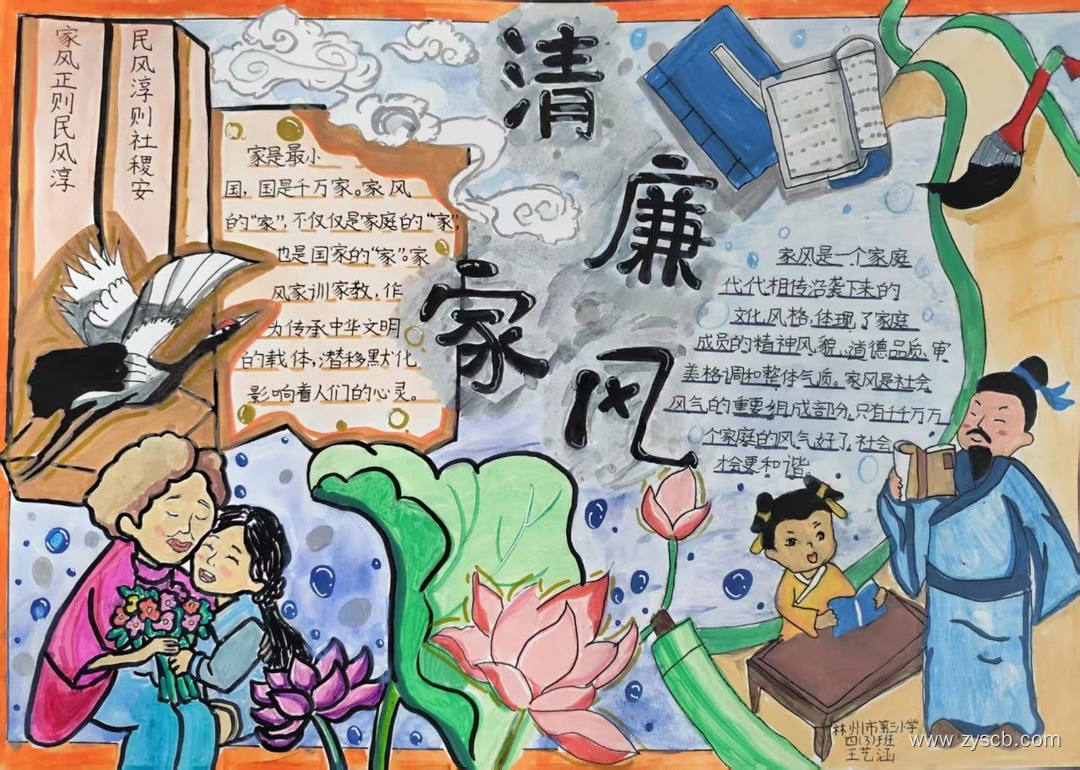 清廉家风
民风淳则社稷安
家风正则民风淳
家是最小
国,国是千万家。家风
的“家”,不仅仅是家庭的“家”,
也是国家的“家”。家
风家训家教,作
为传承中华文明
的载体,潜移默化
影响着人们的心灵。
家风是一个家庭
代代相传沿袭下来的
文化风格,体现了家庭
成员的精神风貌、道德品质、审
美格调和整体气质。家风是社会
风气的重要组成部分,只有千千万万
个家庭的风气好了,社会
才会更和谐。
林州市第三小学
四(3)班
王艺涵
www.zyscb.com